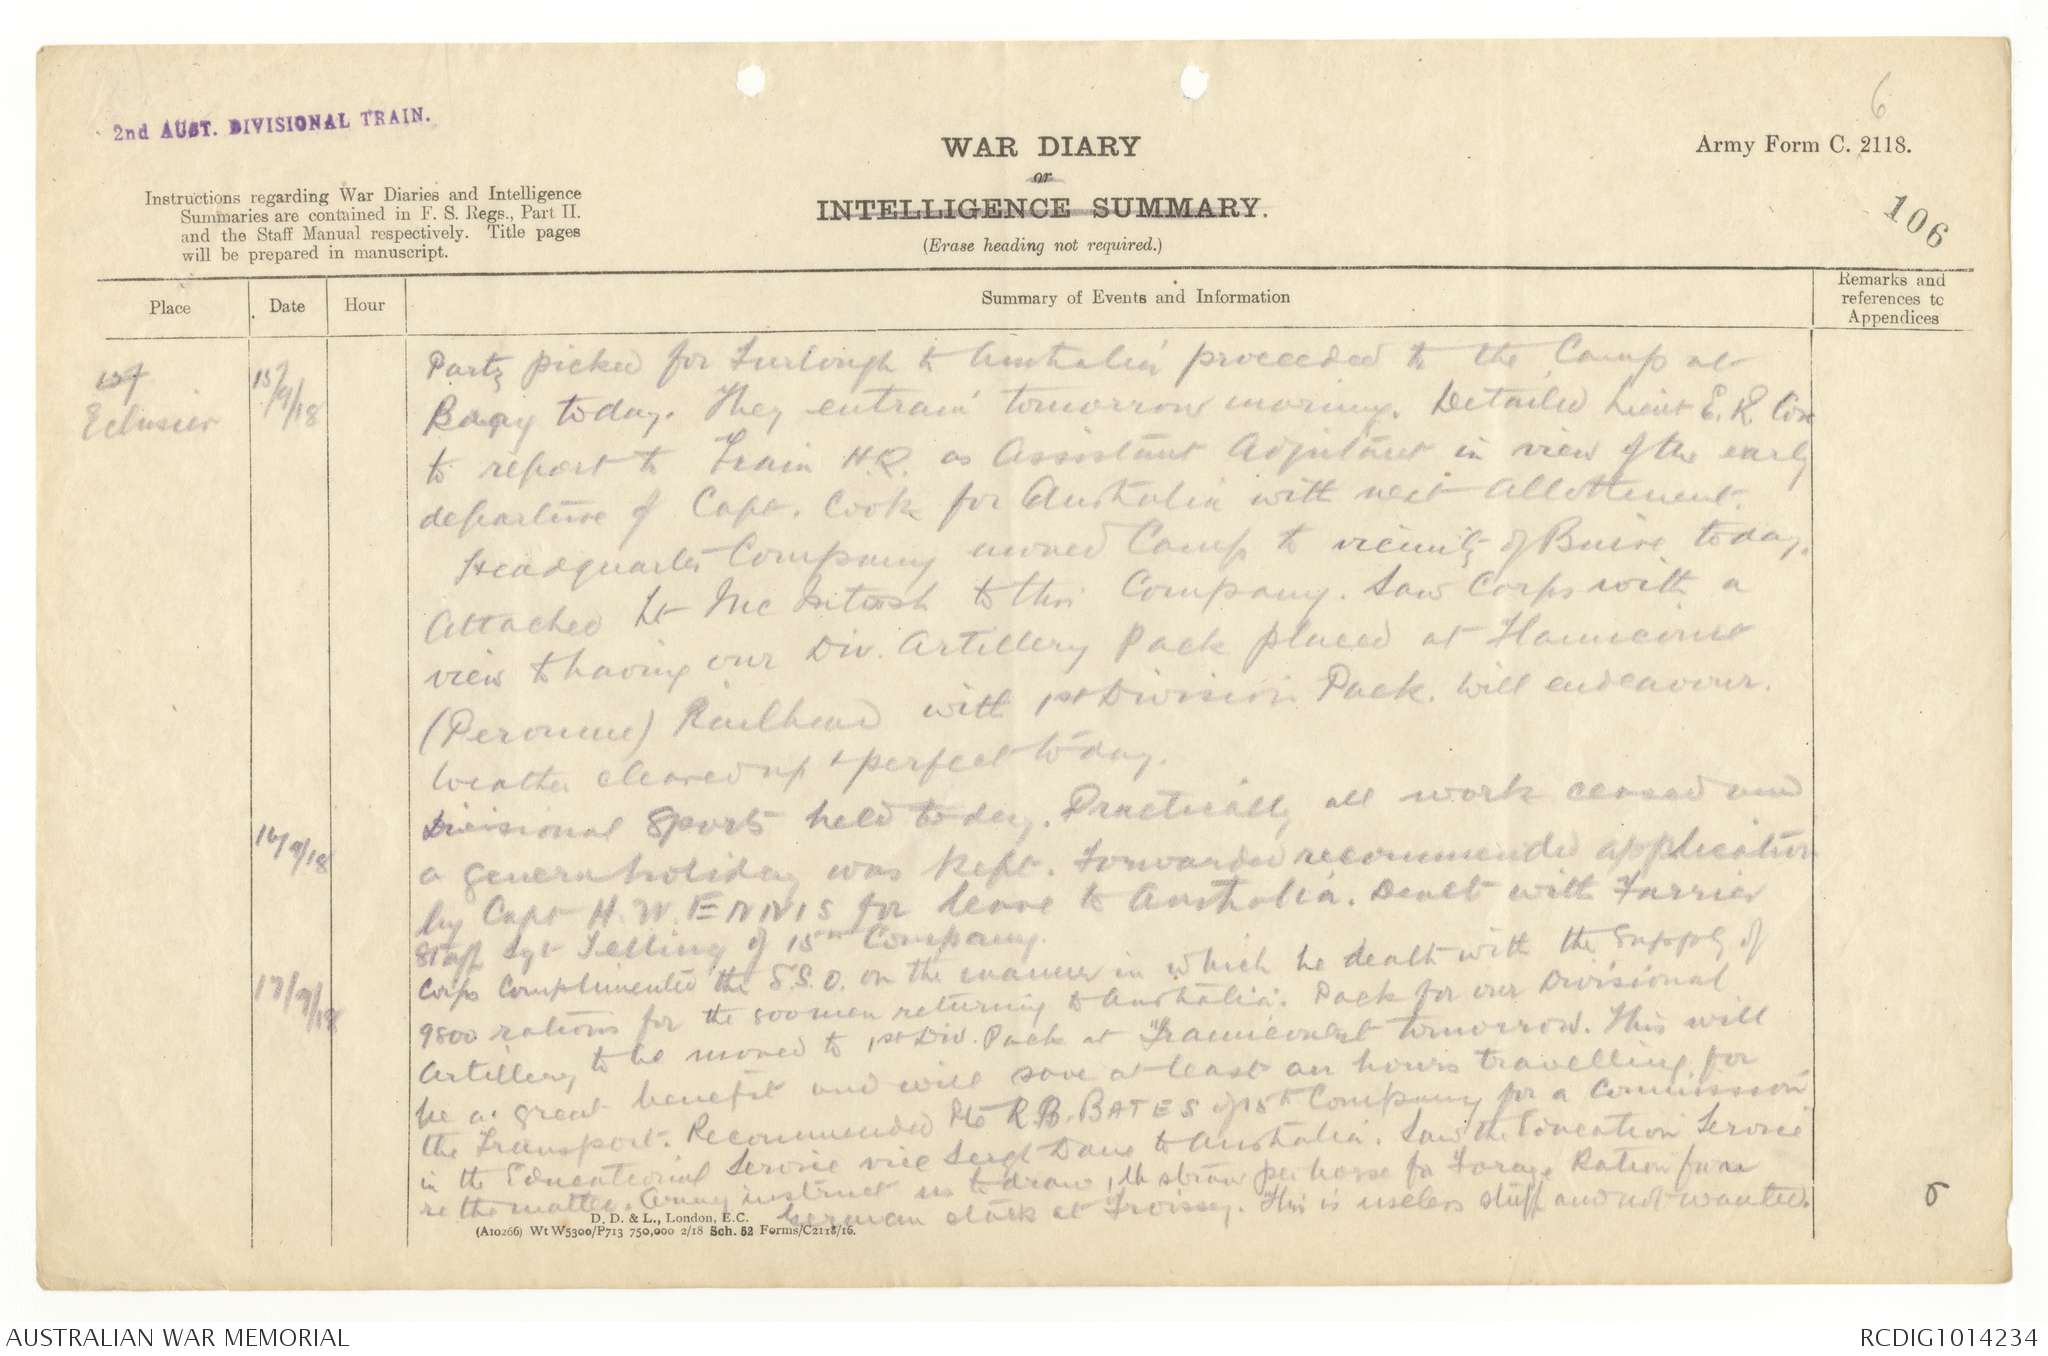 6
2nd AUST. DIVISIONAL TRAIN.
WAR DIARY
or
INTELLIGENCE SUMMARY.
(Erase heading not required.)
Army Form C. 2118.
106
Instructions regarding War Diaries and Intelligence
Summaries are contained in F. S. Regs., Part II.
and the Staff Manual respectively. Title pages
will be prepared in manuscript.
Place
Date
Hour
Summary of Events and Information
Remarks and
references to
Appendices
Eclusier
15/9/18
Party picked for Furlough to Australia proceeded to the Camp at
Bray today. They entrain tomorrow morning. Detailed Lieut E. R. Cox
to report to Train HQ. as Assistant Adjutant in view of the early
departure of Capt. Cook for Australia with next Allottment.
Headquarters Company moved Camp to vicinity of Buire today.
Attached Lt McIntosh to this Company. Saw Corps with a
view to having our Div. Artillery Pack placed at Flamicourt
(Peronne) Railhead with 1st Division Pack. Will endeavour.
Weather cleared up & perfect today.
16/9/18
Divisional Sports held today. Practically all work ceased and
a general holiday was kept. Forwarded recommended application
by Capt H. W. ENNIS for leave to Australia. Dealt with Farrier
Staff Sgt Telling of 15th Company.
17/9/18
Corps Complimented the S.S.O. on the manner in which he dealt with the supply of
9800 rations for the 800 men returning to Australia. Pack for our Divisional
Artillery to be moved to 1st Div. Pack at Flamicourt tomorrow. This will
be a great benefit and will save at least an hours travelling for
the Transport. Recommended Pte R. B. BATES of 15th Company for a Commission
in the Educational Service vice Sergt Dane to Australia. Saw the Education Service
re the matter. Army instruct us to draw 1 lb straw per horse for Forage Ration from
German stack at Froissy. This is useless stuff and not wanted.
D. D. & L., London, E.C.
(A10266) Wt W5300/P713 750,000 2/18 Sch. 52 Forms/C2118/16.
AUSTRALIAN WAR MEMORIAL
RCDIG1014234